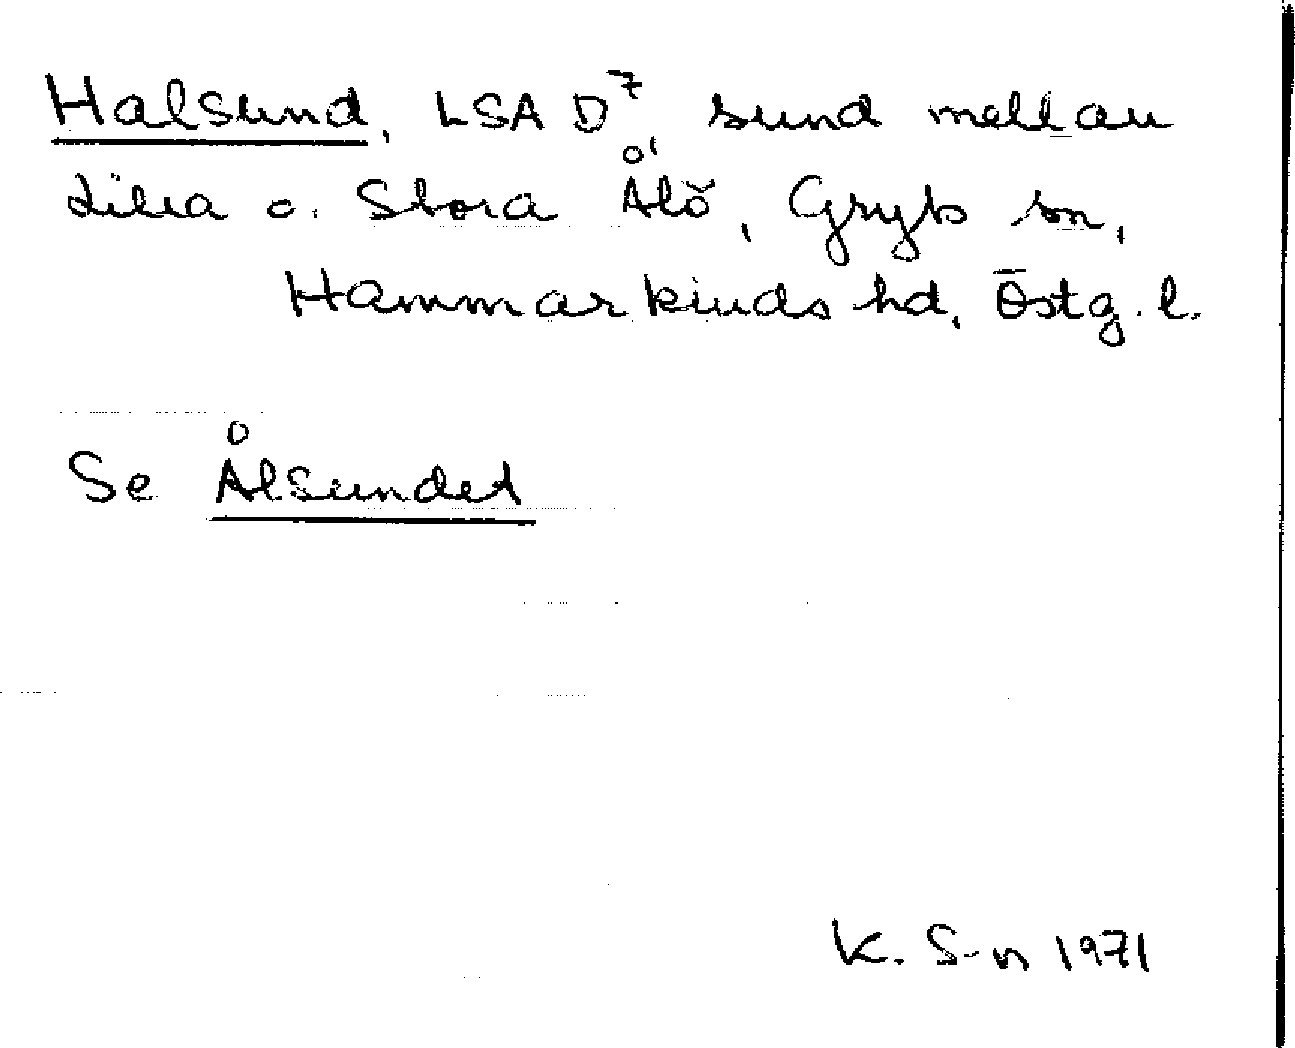 Halsund, LSA D7, sund mellan
Lilla o. Stora Ålö, Gryts sn,
Hammarkinds hd, Östg. l.
Se Ålsundet
K. S-n 1971